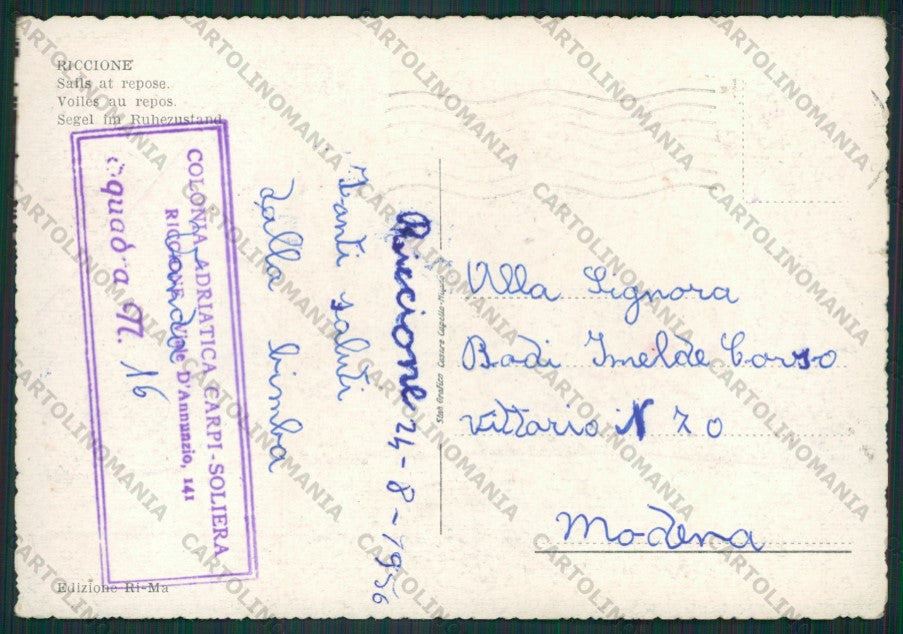 RICCIONE
Sails at repose.
Voiles au repos.
Segel im Ruhezustand
COLONIA ADRIATICA CARPI-SOLIERA
RICCIONE Viale D'Annunzio, 141
Squadra N. 16
Riccione 24-8-1956
Tanti saluti
dalla bimba
Alla Signora
Badi Imelde Corso
Vittorio N 70
Modena
Edizione Ri-Ma
CARTOLINOMANIA